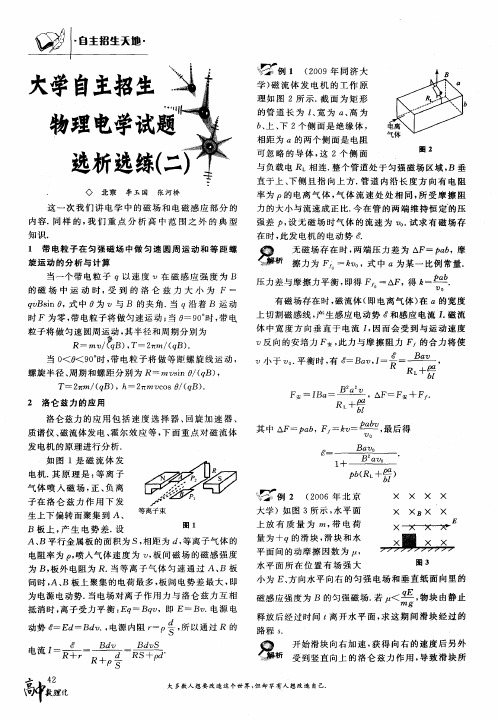 ·自主招生天地·
大学自主招生
物理电学试题
选析选练(二)
◇ 北京 李玉国 张河桥
这一次我们讲电学中的磁场和电磁感应部分的
内容.同样的,我们重点分析高中范围之外的典型
知识.
1 带电粒子在匀强磁场中做匀速圆周运动和等距螺
旋运动的分析与计算
当一个带电粒子 q 以速度 v 在磁感应强度为 B
的磁场中运动时,受到的洛仑兹力大小为 F=
qvBsin θ,式中 θ 为 v 与 B 的夹角.当 q 沿着 B 运动
时 F 为零,带电粒子将做匀速运动;当 θ=90°时,带电
粒子将做匀速圆周运动,其半径和周期分别为
R=mv/(qB),T=2πm/(qB).
当 0<θ<90°时,带电粒子将做等距螺旋线运动,
螺旋半径、周期和螺距分别为 R=mvsin θ/(qB),
T=2πm/(qB),h=2πmvcos θ/(qB).
2 洛仑兹力的应用
洛仑兹力的应用包括速度选择器、回旋加速器、
质谱仪、磁流体发电、霍尔效应等,下面重点对磁流体
发电机的原理进行分析.
如图 1 是磁流体发
电机.其原理是:等离子
气体喷入磁场,正、负离
子在洛仑兹力作用下发
生上下偏转而聚集到 A、
B 板上,产生电势差.设
等离子束
图 1
A、B 平行金属板的面积为 S,相距为 d,等离子气体的
电阻率为 ρ,喷入气体速度为 v,板间磁场的磁感强度
为 B,板外电阻为 R.当等离子气体匀速通过 A、B 板
间时,A、B 板上聚集的电荷最多,板间电势差最大,即
为电源电动势.当电场作用力与洛仑兹力互相
抵消时,离子受力平衡:Eq=Bqv,即 E=Bv.电源电
动势 ℰ=Ed=Bdv.,电源内阻 r=ρ d/S,所以通过 R 的
电流 I=ℰ/(R+r)=Bdv/(R+ρ d/S)=BdvS/(RS+ρd).
例 1 (2009 年同济大
学)磁流体发电机的工作原
理如图 2 所示.截面为矩形
的管道长为 l、宽为 a、高为
b、上、下 2 个侧面是绝缘体,
相距为 a 的两个侧面是电阻
可忽略的导体,这 2 个侧面
电离
气体
图 2
与负载电 R_L 相连.整个管道处于匀强磁场区域,B 垂
直于上、下侧且指向上方.管道内沿长度方向有电阻
率为 ρ 的电离气体,气体流速处处相同,所受摩擦阻
力的大小与流速成正比.今在管的两端维持恒定的压
强差 p,设无磁场时气体的流速为 v₀.试求有磁场存
在时,此发电机的电动势 ℰ.
解析 无磁场存在时,两端压力差为 ΔF=pab,摩
擦力为 F_f₀=kv₀,式中 a 为某一比例常量.
压力差与摩擦力平衡,即得 F_f₀=ΔF,得 k=pab/v₀.
有磁场存在时,磁流体(即电离气体)在 a 的宽度
上切割磁感线,产生感应电动势 ℰ 和感应电流 I.磁流
体中宽度方向垂直于电流 I,因而会受到与运动速度
v 反向的安培力 F安,此力与摩擦阻力 F_f 的合力将使
v 小于 v₀.平衡时,有 ℰ=Bav,I=ℰ/R=Bav/(R_L+ρa/bl),
F安=IBa=B²a²v/(R_L+ρa/bl),ΔF=F安+F_f.
其中 ΔF=pab,F_f=kv=pabv/v₀,最后得
ℰ=Bav₀/(1+B²av₀/(pb(R_L+ρa/bl))).
例 2 (2006 年北京
大学)如图 3 所示,水平面
上放有质量为 m,带电荷
量为+q 的滑块,滑块和水
平面间的动摩擦因数为 μ,
水平面所在位置有场强大
图 3
小为 E、方向水平向右的匀强电场和垂直纸面向里的
磁感应强度为 B 的匀强磁场.若 μ<qE/mg,物块由静止
释放后经过时间 t 离开水平面,求这期间滑块经过的
路程 s.
解析 开始滑块向右加速,获得向右的速度后另外
受到竖直向上的洛仑兹力作用,导致滑块所
42
高中数理化
大多数人想要改造这个世界,但却罕有人想改造自己.